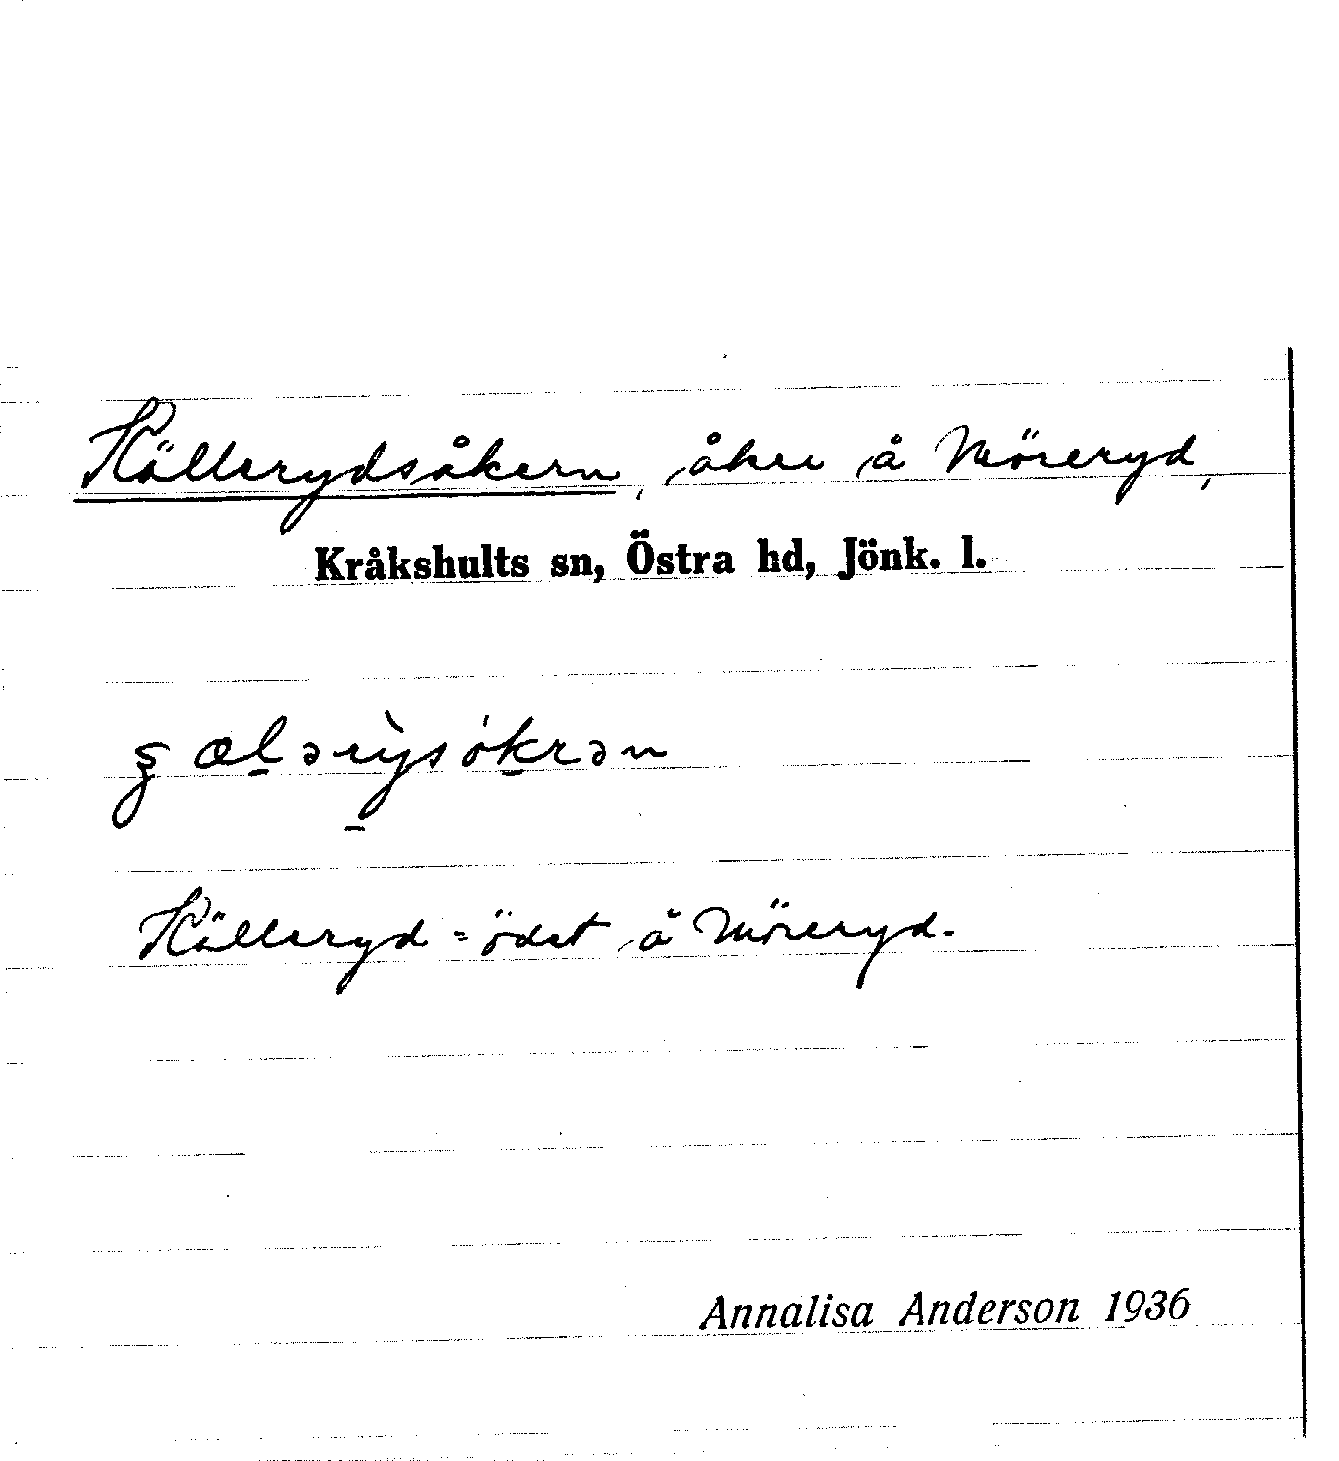 Källerydsåkern, åker å Möreryd,
Kråkshults sn, Östra hd, Jönk. l.
Källeryd = ödet å Möreryd.
Annalisa Anderson 1936